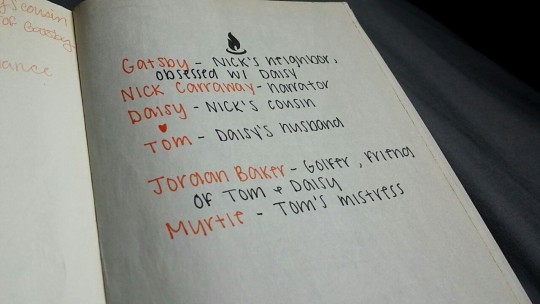 y's cousin
of Gatsby
Gatsby - Nick's neighbor,
obsessed w/ Daisy
Nick Carraway - narrator
Daisy - Nick's cousin
Tom - Daisy's husband
Jordan Baker - Golfer, friend
of Tom & Daisy
Myrtle - Tom's mistress